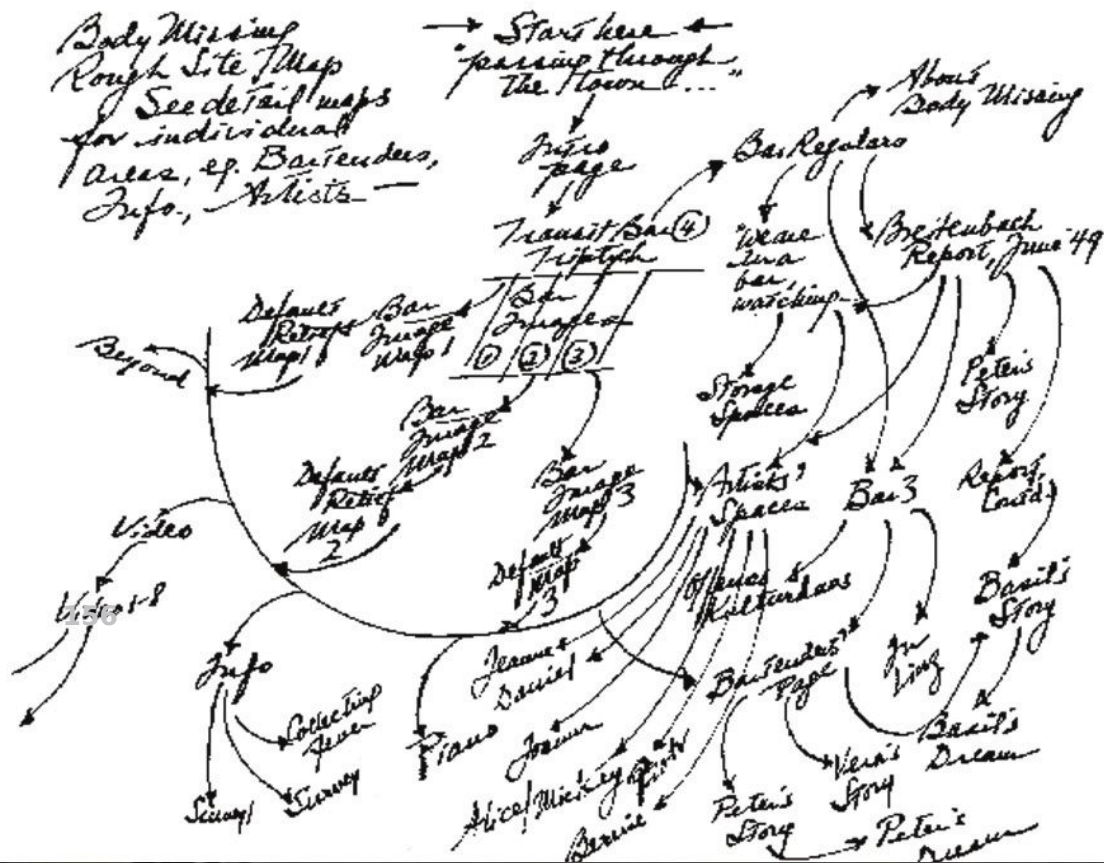 Body Missing
Rough Site Map
See detail maps
for individual
areas, eg. Bartenders,
Info., Artists
Start here
"passing through
the town..."
Intro
page
Transit Bar ④
Triptych
Bar
Images
① ② ③
Bar Regulars
About
Body Missing
"We are
in a
bar,
watching
Breitenbach
Report, June '49
Default
Map 1
Bar
Image
Map 1
Beyond
Bar
Image
Map 2
Default
Map
2
Bar
Image
Map 3
Default
Map
3
Storage
Spaces
Peter's
Story
Artists'
Spaces
Bar 3
Report,
Cont'd
Video
156
Offenes
Kulturhaus
Basil's
Story
Info
Collecting
fever
Survey
Piano
Jeanne
Daniel
Joanna
Alice/Mickey
Bernie
Bartenders'
Page
In
Linz
Basil's
Dream
Vera's
Story
Peter's
Story
Peter's
Dream